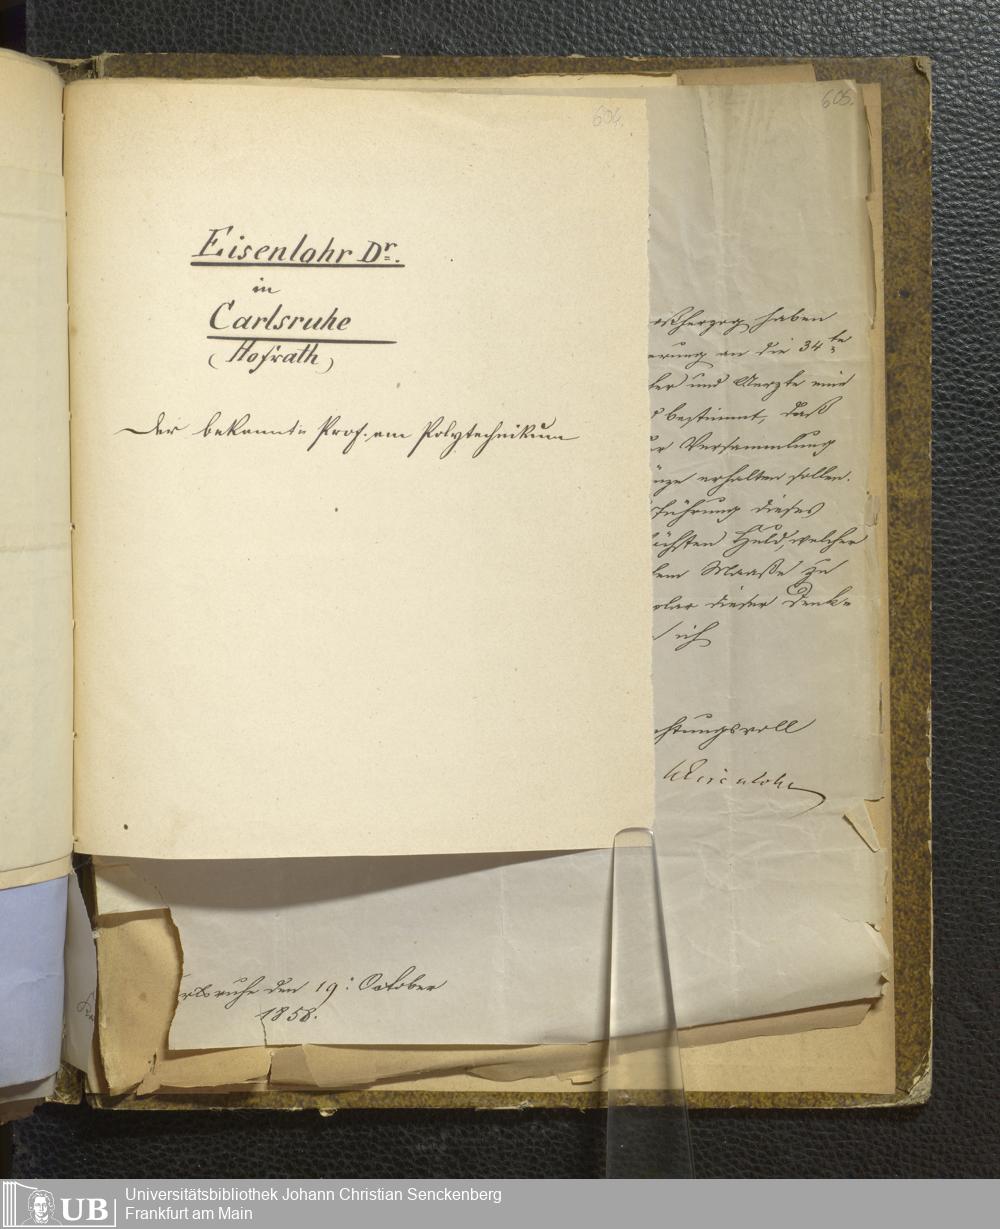 604.
Eisenlohr Dr.
in
Carlsruhe
(Hofrath)
Der bekannte Prof. am Polytechnikum
605.
oßherzog haben
erung an die 34te
her und Aerzte eine
bestimmt, daß
er Versammlung
ünze erhalten sollen.
führung dieses
öchsten Huld, welcher
dem Maaße zu
plar dieser Denk=
ich
chtungsvoll
WEisenlohr
rlsruhe den 19: October
1858.
UB
Universitätsbibliothek Johann Christian Senckenberg
Frankfurt am Main